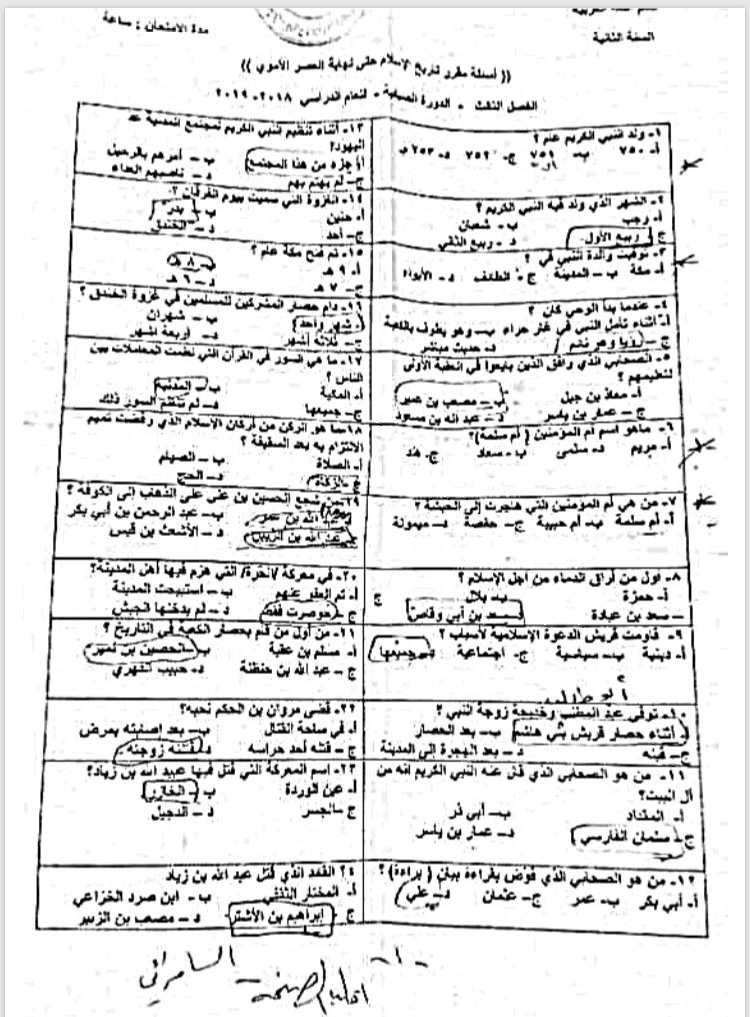 السنة الثانية
مدة الامتحان : ساعة
(( أسئلة مقرر تاريخ الإسلام حتى نهاية العصر الأموي ))
الفصل الثالث - الدورة الصيفية - للعام الدراسي ٢٠١٨-٢٠١٩
١- ولد النبي الكريم عام ؟
أ- ٧٥٠ ب- ٧٥١ ج- ٧٥٢ د- ٧٥٣
٢- الشهر الذي ولد فيه النبي الكريم ؟
أ- رجب ب- شعبان
ج- ربيع الأول د- ربيع الثاني
٣- توفيت والدة النبي في ؟
أ- مكة ب- المدينة ج- الطائف د- الأبواء
٤- عندما بدأ الوحي كان ؟
أ- أثناء تأمل النبي في غار حراء ب- وهو يطوف بالكعبة
ج- رؤيا وهو نائم د- حديث مباشر
٥- الصحابي الذي رافق الذين بايعوا في العقبة الأولى
لتعليمهم ؟
أ- معاذ بن جبل ب- مصعب بن عمير
ج- عمار بن ياسر د- عبد الله بن مسعود
٦- ماهو اسم أم المؤمنين ( أم سلمة)؟
أ- مريم د- سلمى ب- سعاد ج- هند
٧- من هي أم المؤمنين التي هاجرت إلى الحبشة ؟
أ- أم سلمة ب- أم حبيبة ج- حفصة د- ميمونة
٨- أول من أراق الدماء من أجل الإسلام ؟
أ- حمزة ب- بلال ج
- سعد بن عبادة د- سعد بن أبي وقاص
٩- قاومت قريش الدعوة الإسلامية لأسباب ؟
أ- دينية ب- سياسية ج- اجتماعية د- جميعها
١٠- توفي عبد المطلب وخديجة زوجة النبي ؟
أ- أثناء حصار قريش بني هاشم ب- بعد الحصار
ج- قبله د- بعد الهجرة إلى المدينة
١١- من هو الصحابي الذي قال عنه النبي الكريم إنه من
آل البيت؟
أ- المقداد ب- أبي ذر
ج- سلمان الفارسي د- عمار بن ياسر
١٢- من هو الصحابي الذي فوض بقراءة بيان ( براءة) ؟
أ- أبي بكر ب- عمر ج- عثمان د- علي
١٣- أثناء تنظيم النبي الكريم لمجتمع المدينة عد
اليهود؟
أ- جزء من هذا المجتمع ب- أمرهم بالرحيل
ج- لم يهتم بهم د- ناصبهم العداء
١٤- الغزوة التي سميت بيوم الفرقان ؟
أ- حنين ب- بدر
ج- أحد د- الخندق
١٥- تم فتح مكة عام ؟
أ- ٩ هـ ب- ٨ هـ
ج- ٧ هـ د- ٦ هـ
١٦- دام حصار المشركين للمسلمين في غزوة الخندق ؟
أ- شهر واحد ب- شهران
ج- ثلاثة أشهر د- أربعة أشهر
١٧- ما هي السور في القرآن التي نظمت المعاملات بين
الناس ؟
أ- المكية ب- المدنية
ج- جميعها د- لم تنظم السور ذلك
١٨- ما هو الركن من أركان الإسلام الذي رفضت تميم
الالتزام به بعد السقيفة ؟
أ- الصلاة ب- الصيام
ج- الزكاة د- الحج
١٩- من شجع الحسين بن علي على الذهاب إلى الكوفة ؟
أ- عبد الله بن عمر ب- عبد الرحمن بن أبي بكر
ج- عبد الله بن الزبير د- الأشعث بن قيس
٢٠- في معركة /الحرة/ التي هزم فيها أهل المدينة؟
أ- تم العفو عنهم ب- استبيحت المدينة
ج- حوصرت فقط د- لم يدخلها الجيش
٢١- من أول من قام بحصار الكعبة في التاريخ ؟
أ- مسلم بن عقبة ب- الحصين بن نمير
ج- عبد الله بن حنظلة د- حبيب الفهري
٢٢- قضى مروان بن الحكم نحبه؟
أ- في ساحة القتال ب- بعد إصابته بمرض
ج- قتله أحد حراسه د- قتلته زوجته
٢٣- اسم المعركة التي قتل فيها عبيد الله بن زياد؟
أ- عين الوردة ب- الخازر
ج- الجسر د- الدجيل
٢٤ القائد الذي قتل عبد الله بن زياد
أ- المختار الثقفي ب- ابن صرد الخزاعي
ج- إبراهيم بن الأشتر د- مصعب بن الزبير
-١-
السامرائي